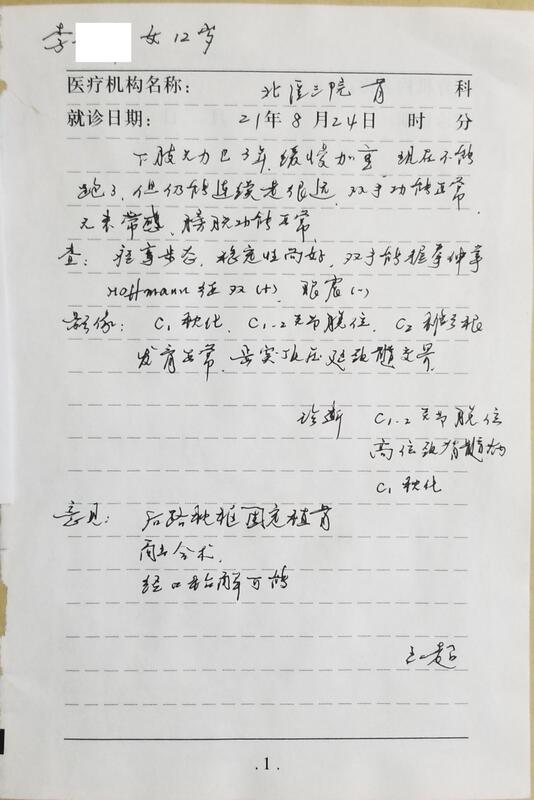 李 女 12岁
医疗机构名称: 北医三院 骨 科
就诊日期: 21年 8月24日 时 分
下肢无力已3年,缓慢加重 现在不能
跑了,但仍能连续走很远,双手功能正常,
膀胱功能正常
查: 痉挛步态,稳定性尚好,双手能握拳伸拳
Hoffmann征双(+),眼震(-)
影像: C1枕化,C1-2关节脱位,C2
发育正常,齿突顶压延颈髓交界
诊断 C1-2关节脱位
高位颈脊髓
C1枕化
意见: 后路枕枢固定植骨
融合术,
经口松解可能
王超
. 1 .